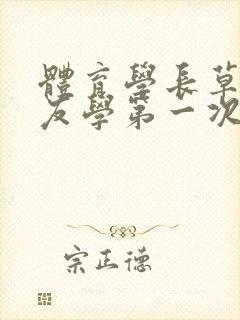 體育學長草
友學第一次
宗正德